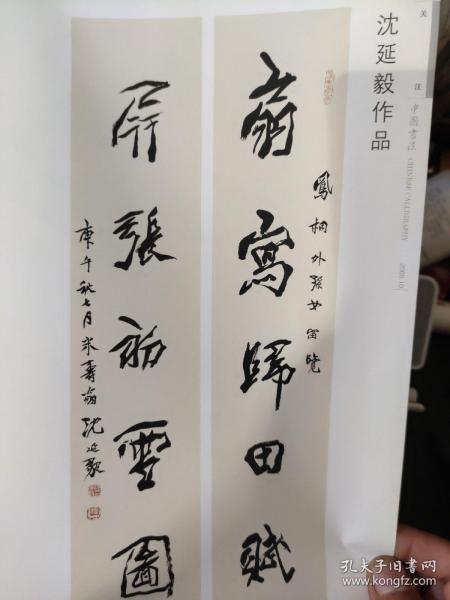 沈延毅作品
关 注
中國書法 CHINESE CALLIGRAPHY 2008.10
扇寫歸田賦
鳳桐外孫女留覽
屏張初雪圖
庚午秋七月米壽翁沈延毅
孔夫子旧书网
www.kongfz.com